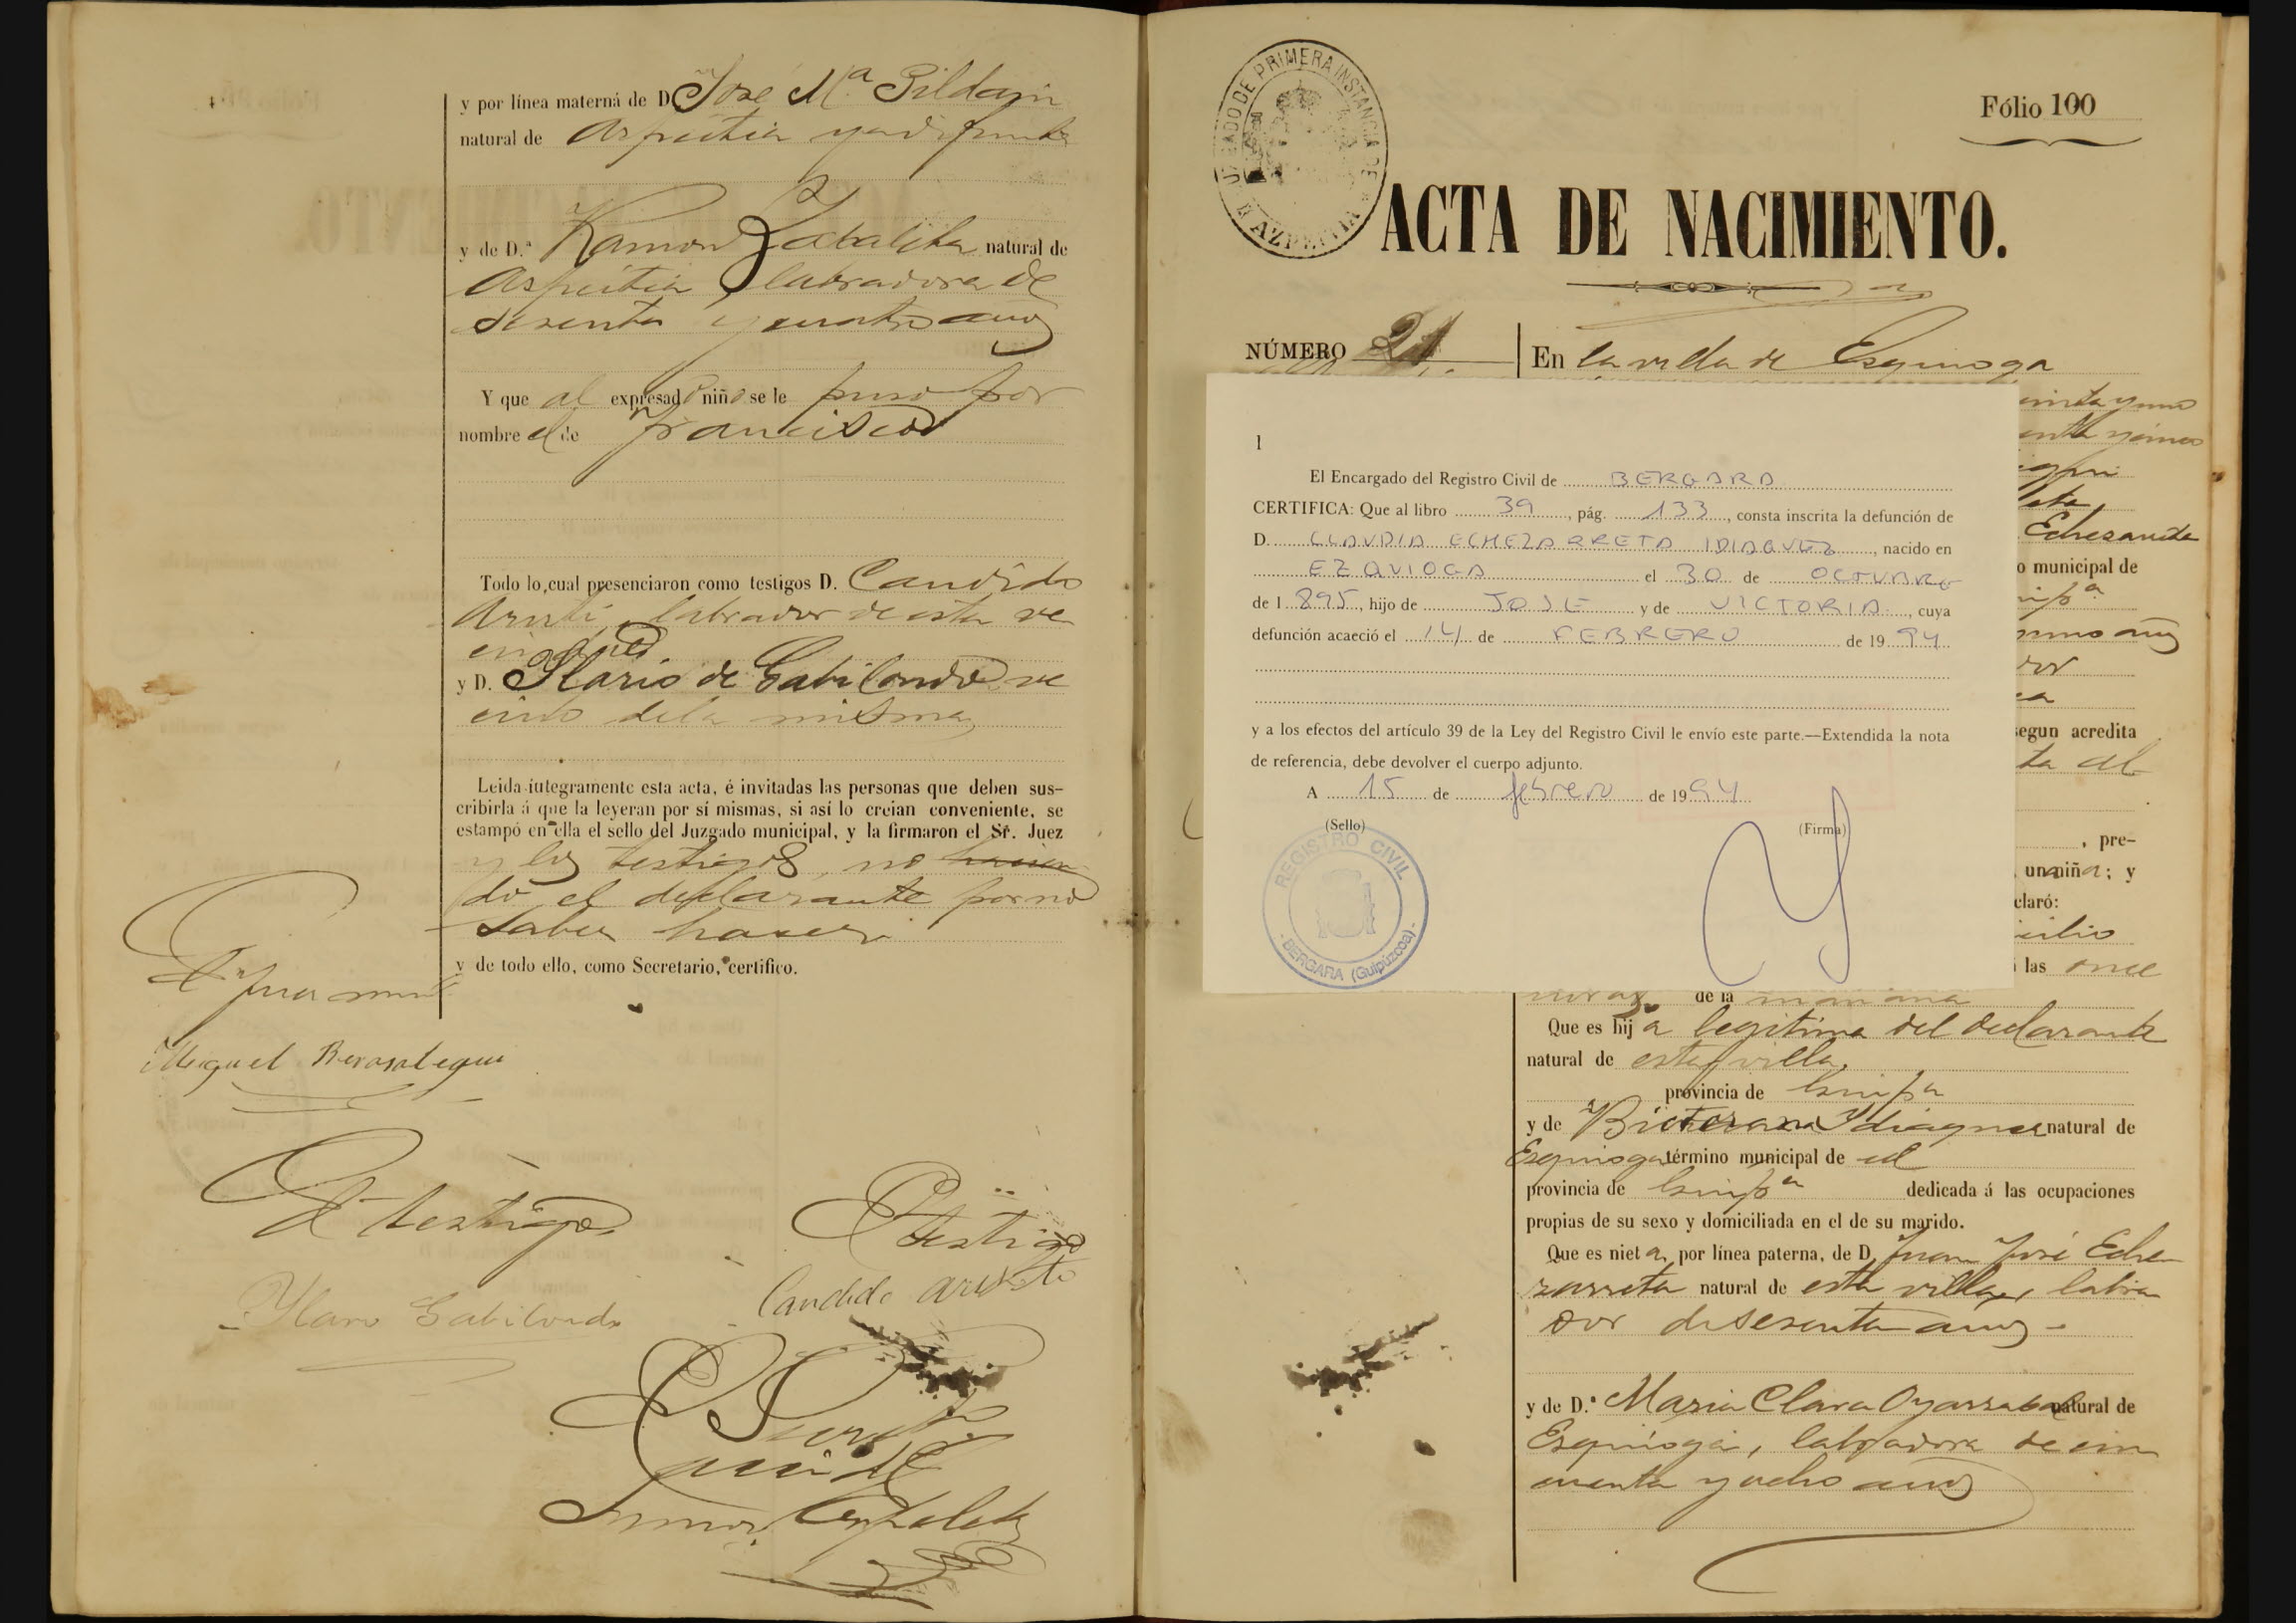 y por línea materna de D. José Mª Gildain
natural de Aspeitia ya difunto
y de D.ª Ramona Zabaleta natural de
Aspeitia labradora de
sesenta y cuatro años
Y que al expresado niño se le puso por
nombre el de Francisco
Todo lo cual presenciaron como testigos D. Candido
labrador de esta ve
y D. Ilario de Gabilondo ve
cino de la misma
Leida íntegramente esta acta, é invitadas las personas que deben sus-
cribirla á que la leyeran por sí mismas, si así lo creian conveniente, se
estampó en ella el sello del Juzgado municipal, y la firmaron el Sr. Juez
y los testigos, no hacien
do el declarante por no
saber hacer
y de todo ello, como Secretario, certifico.
Miguel Berasategui
El testigo
El testigo
Ylario Gabilondo
Candido
JUZGADO DE PRIMERA INSTANCIA DE AZPEITIA
Fólio 100
ACTA DE NACIMIENTO.
NÚMERO 21
En la villa de Esquioga
1
El Encargado del Registro Civil de BERGARA
CERTIFICA: Que al libro 39, pág. 133, consta inscrita la defunción de
D. CLAUDIA ECHEZARRETA IDIAQUEZ, nacido en
EZQUIOGA el 30 de OCTUBRE
de 1895, hijo de JOSE y de VICTORIA, cuya
defunción acaeció el 14 de FEBRERO de 1994
y a los efectos del artículo 39 de la Ley del Registro Civil le envío este parte.—Extendida la nota
de referencia, debe devolver el cuerpo adjunto.
A 15 de febrero de 1994
(Sello)
(Firma)
REGISTRO CIVIL
BERGARA (Guipúzcoa)
Echesarreta
o municipal de
egun acredita
ta el
, pre-
una niña; y
claró:
las once
horas de la mañana
Que es hija legitima del declarante
natural de esta villa,
provincia de Guipª
y de Bictorana Ydiaques natural de
Esquioga término municipal de id
provincia de Guipª dedicada á las ocupaciones
propias de su sexo y domiciliada en el de su marido.
Que es nieta, por línea paterna, de D. Juan José Eche
zarreta natural de esta villa, labra
dor de sesenta años
y de D.ª Maria Clara Oyarzabal natural de
Esquioga, labradora de cin
cuenta y ocho años